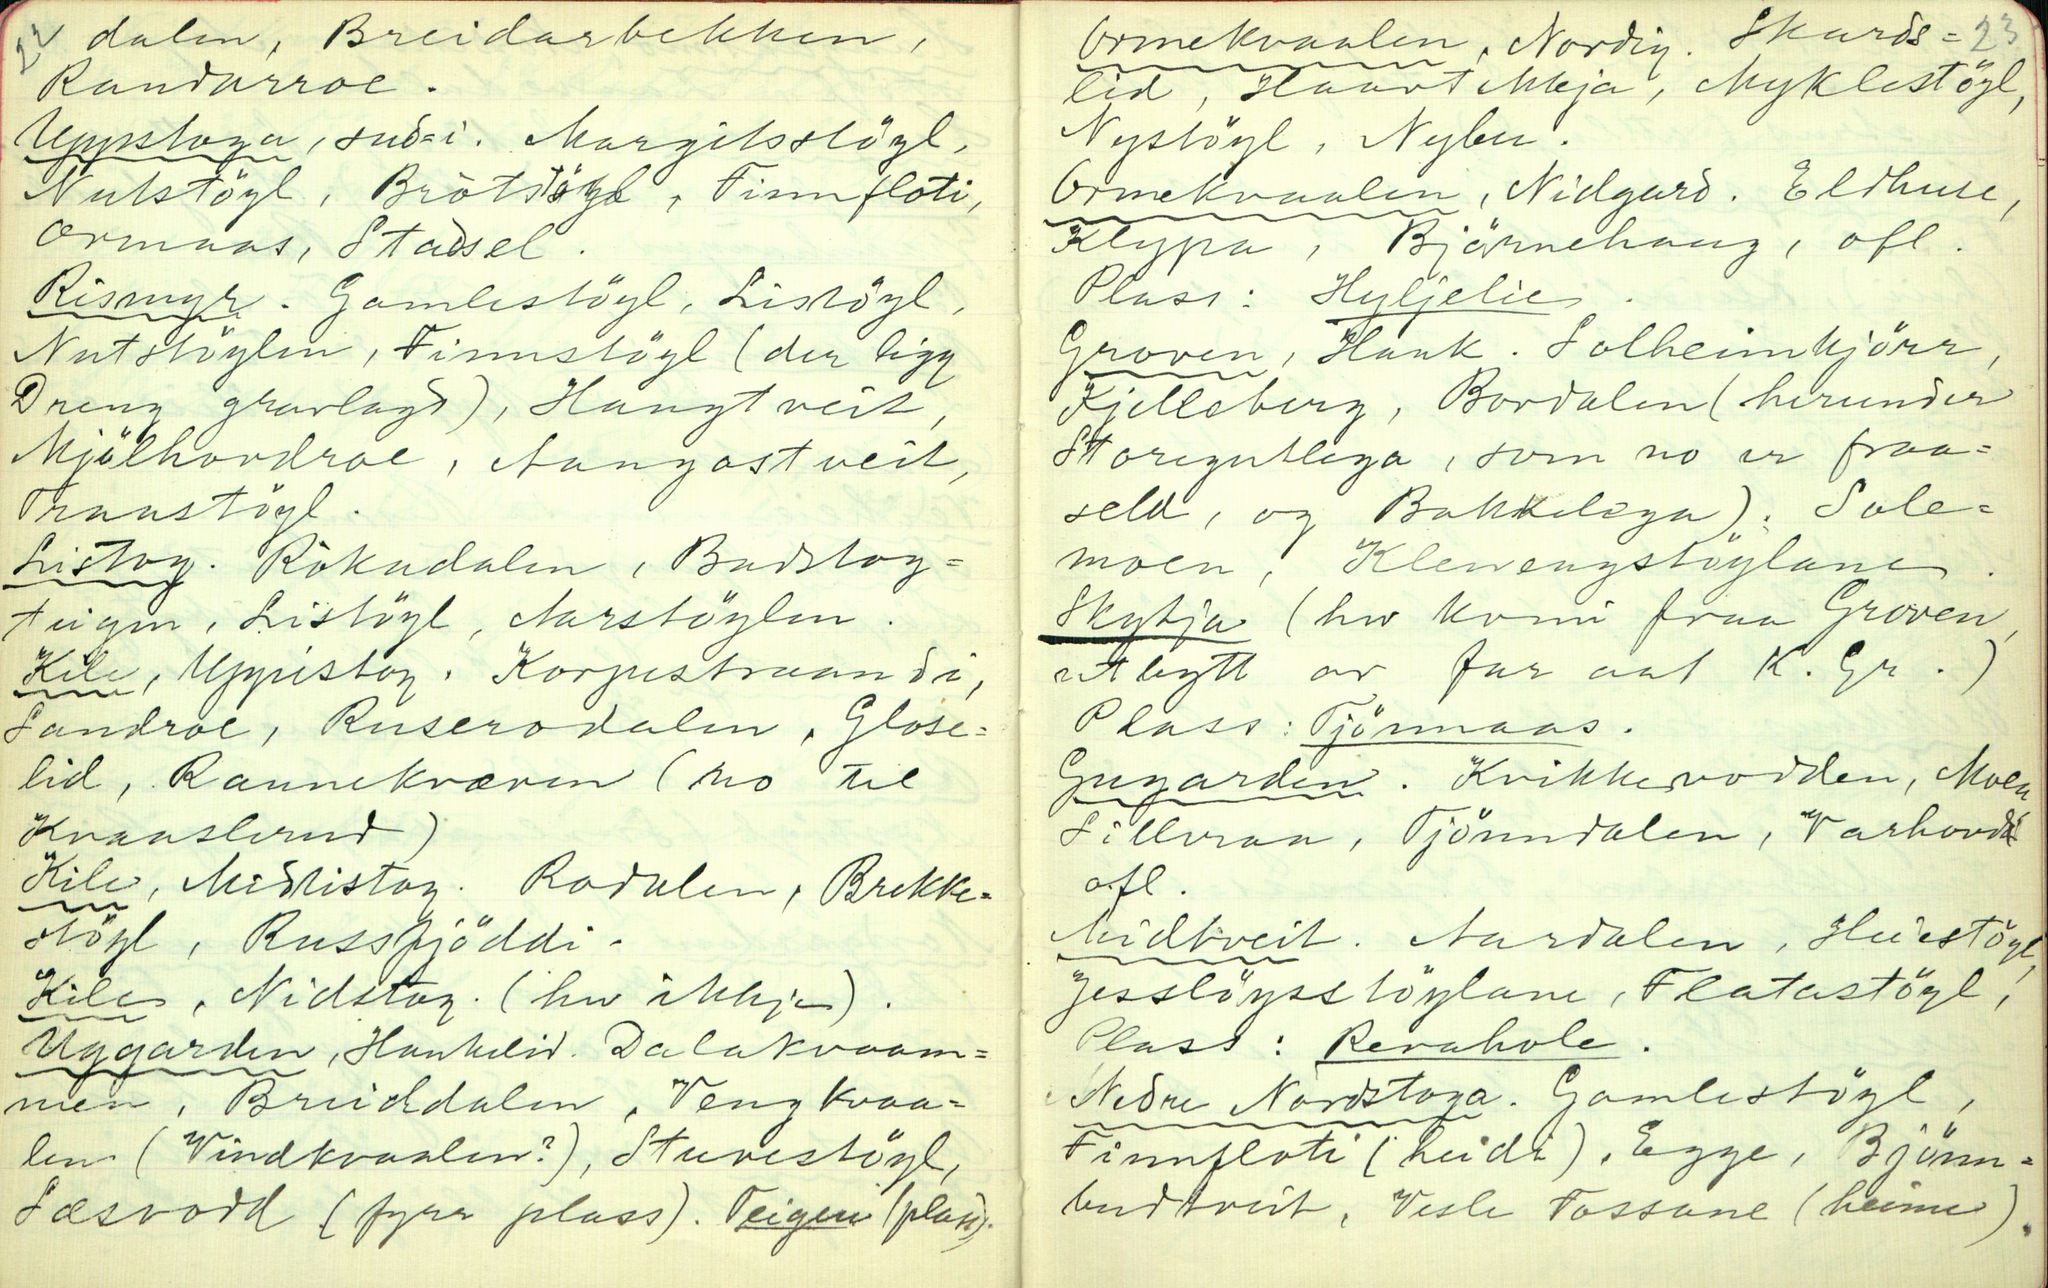 22
dalen, Breidarbekken,
Randarroe.
Uppstoga, sud-i. Margitsstöyl,
Nutstöyl, Brötstöyl, Finnfloti,
Ormaas, Stadsel.
Rismyr. Gamlestöyl, Listöyl,
Nutstöylen, Finnstöyl (der ligg
Dreng gravlagd), Haugtveit,
Mjölhovdroe, Aangostveit,
Traastöyl.
Listog. Rökudalen, Badstog=
teigen, Listöyl, Aarstöylen.
Kile, Uppistog. Korpestraandi,
Sandroe, Ruserodalen, Glose=
lid, Raunekværen (no til
Kvaaslerud)
Kile, Midtistog. Rodalen, Brekke=
stöyl, Russfjöddi.
Kile, Nidstog. (hev ikkje).
Uggarden, Haukelid. Dalakvaam=
men, Breiddalen, Vengkvaa=
len (Vindkvaalen?), Stuvestöyl,
Sæsvodd (fyrr plass). Teigen (plass).
23
Ormekvaalen, Nordig. Skards=
lid, Haavtekkja, Myklestöyl,
Nystöyl, Nybu.
Ormekvaalen, Nidgard. Eldhuse,
Klypa, Björnehaug, ofl.
Plass: Hyljelie.
Groven, Hauk. Solheimkjörr,
Kjelleberg, Bordalen (herunder
Storegutlega, som no er fraa=
seld, og Bakkelega). Sole=
moen, Klevengstöylane.
Skytja (hev komi fraa Groven,
utbytt av far aat K. Gr.)
Plass: Tjönnaas.
Gugarden. Kvikkevodden, Moen
Sillvraa, Tjönndalen, Varhovd
ofl.
Midtveit. Aardalen, Heiestöyl,
Jesslöysstöylane, Flatastöyl,
Plass: Revahole.
Nedre Nordstoga. Gamlestöyl,
Finnfloti (heidi), Egge, Björn=
budtveit, Vesle Fossane (heime).